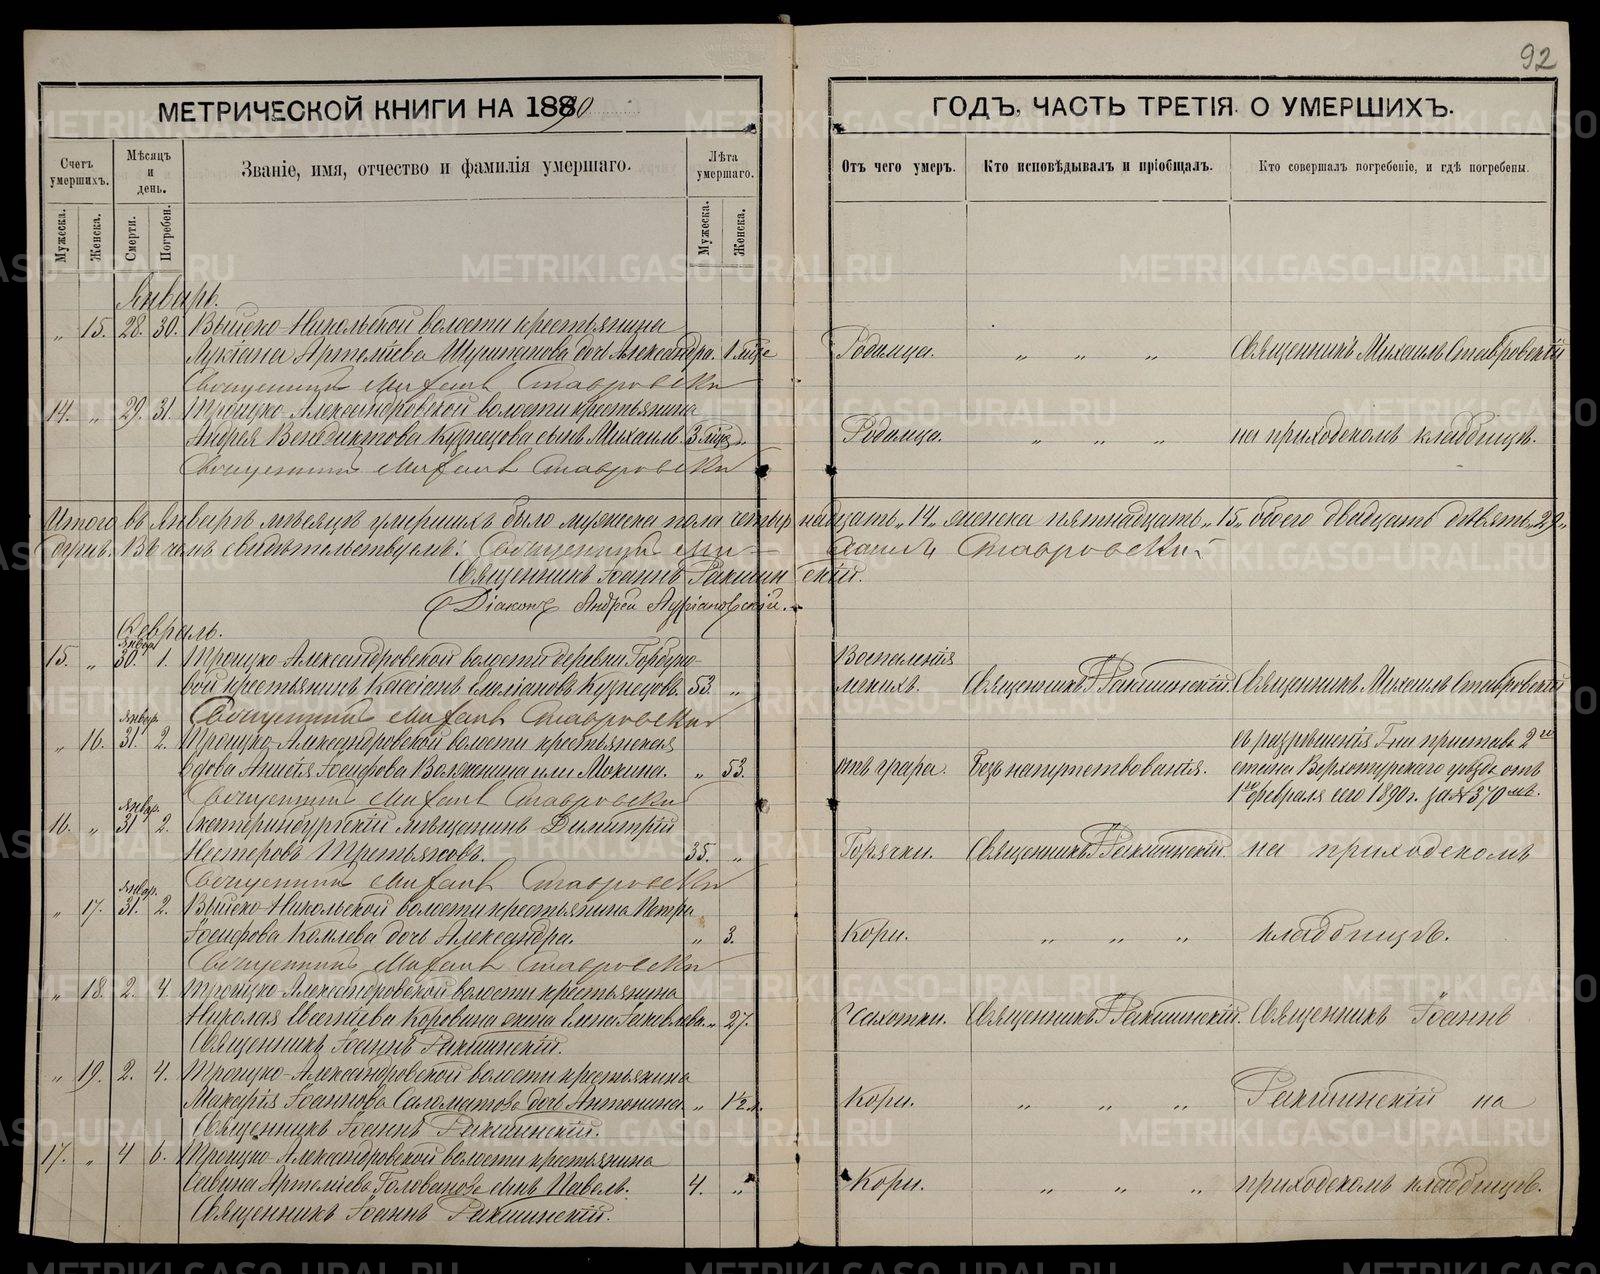 92
МЕТРИЧЕСКОЙ КНИГИ НА 18890
ГОДЪ, ЧАСТЬ ТРЕТІЯ. О УМЕРШИХЪ.
Счетъ умершихъ.
Мѣсяцъ и день.
Званіе, имя, отчество и фамилія умершаго.
Лѣта умершаго.
Отъ чего умеръ.
Кто исповѣдывалъ и пріобщалъ.
Кто совершалъ погребеніе, и гдѣ погребены.
Мужеска.
Женска.
Смерти.
Погребен.
Мужеска.
Женска.
Январь.
„ 15. 28. 30. Выйско-Никольской волости крестьянина
Лукіана Артеміева дочь Александра. 1 мѣс Родимца. „ „ „ Священникъ Михаилъ Ставровскій
Священникъ Михаилъ Ставровскій
14. „ 29. 31. Троицко-Александровской волости крестьянина
Андрея Венедиктова Кузнецова сынъ Михаилъ. 3 „ Родимца. „ „ „ на приходскомъ кладбищѣ.
Священникъ Михаилъ Ставровскій
Итого въ Январѣ мѣсяцѣ умершихъ было мужеска пола четырнадцать „14„ женска пятнадцать „15„ обоего двадцать девять „29„
Въ чемъ свидѣтельствуемъ: Священникъ Михаилъ Ставровскій
Священникъ Іоаннъ Ракшинскій.
Діаконъ Андрей
Февраль.
Январ.
15. „ 30. 1. Троицко-Александровской волости деревни Горбуно- Воспаленія
вой крестьянинъ Кассіанъ Емеліановъ Кузнецовъ. 53. „ легкихъ. Священникъ І Ракшинскій. Священникъ Михаилъ Ставровскій
Священникъ Михаилъ Ставровскій
Январ.
„ 16. 31. 2. Троицко-Александровской волости крестьянская съ разрѣшенія Г-на пристава 2го
вдова Анисія Іосифова Волжинина или Мокина. „ 53. отъ угара. Безъ напутствованія. стана Верхотурскаго уѣзда отъ
Священникъ Михаилъ Ставровскій 1го февраля сего 1890 г. за № 370мъ.
Январ.
16. „ 31 2. Екатеринбургскій мѣщанинъ Димитрій
Нестеровъ Третьяковъ. 35. „ Горячки. Священникъ І Ракшинскій. на приходскомъ
Священникъ Михаилъ Ставровскій
Январ.
„ 17. 31. 2. Выйско-Никольской волости крестьянина Петра
Іосифова Комлева дочь Александра. „ 3. Кори. „ „ „ кладбищѣ.
Священникъ Михаилъ Ставровскій
„ 18. 2. 4 Троицко-Александровской волости крестьянина
Николая Коровина жена Елена Іаковлева. „ 27. Чахотки. Священникъ І Ракшинскій. Священникъ Іоаннъ
Священникъ Іоаннъ Ракшинскій.
„ 19. 2. 4. Троицко-Александровской волости крестьянина
Макарія Іоаннова Саломатова дочь Антонина. „ 1½ л. Кори. „ „ „ Ракшинскій на
Священникъ Іоаннъ Ракшинскій.
17. „ 4 6. Троицко-Александровской волости крестьянина
Саввина Артеміева Голованова сынъ Павелъ. 4. „ Кори. „ „ „ приходскомъ кладбищѣ.
Священникъ Іоаннъ Ракшинскій.
METRIKI.GASO-URAL.RU